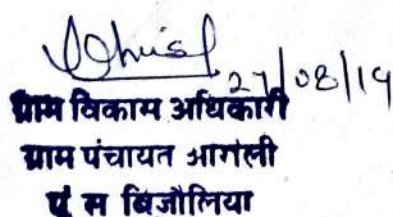 27/08/19
ग्राम विकास अधिकारी
ग्राम पंचायत आगंली
पं स बिजौलिया